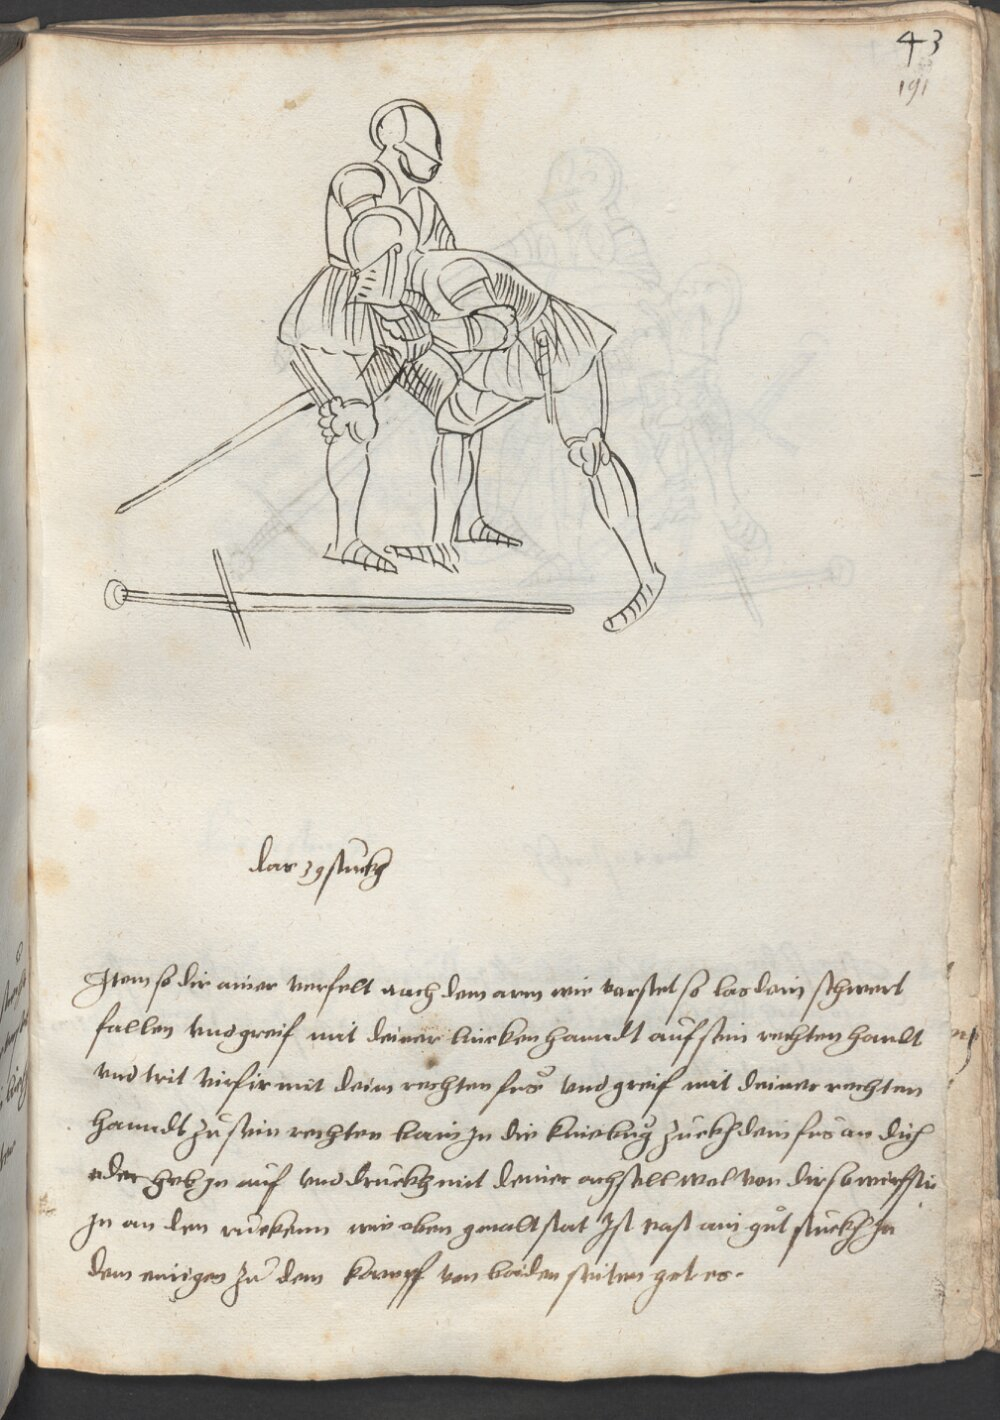 43
191
das 39 stuckh
Item so dir ainer verfelt nach dem arm wie vorstet so las dein schwert
fallen vnd greif mit deiner lincken hanndt auf sein rechten handt
vnd trit hinfir mit deim rechten fus vnd greif mit deiner rechten
hanndt zu sein rechten bain in die kniebug zuckh dein fus an dich
oder heb in auf vnd druckh mit deiner achsell wol von dir so wirfstu
in an den ruckenn wie oben gemalt stat Ist vast ain gut stuckh in
dem ainigen zu dem kampff von baiden seiten get es.